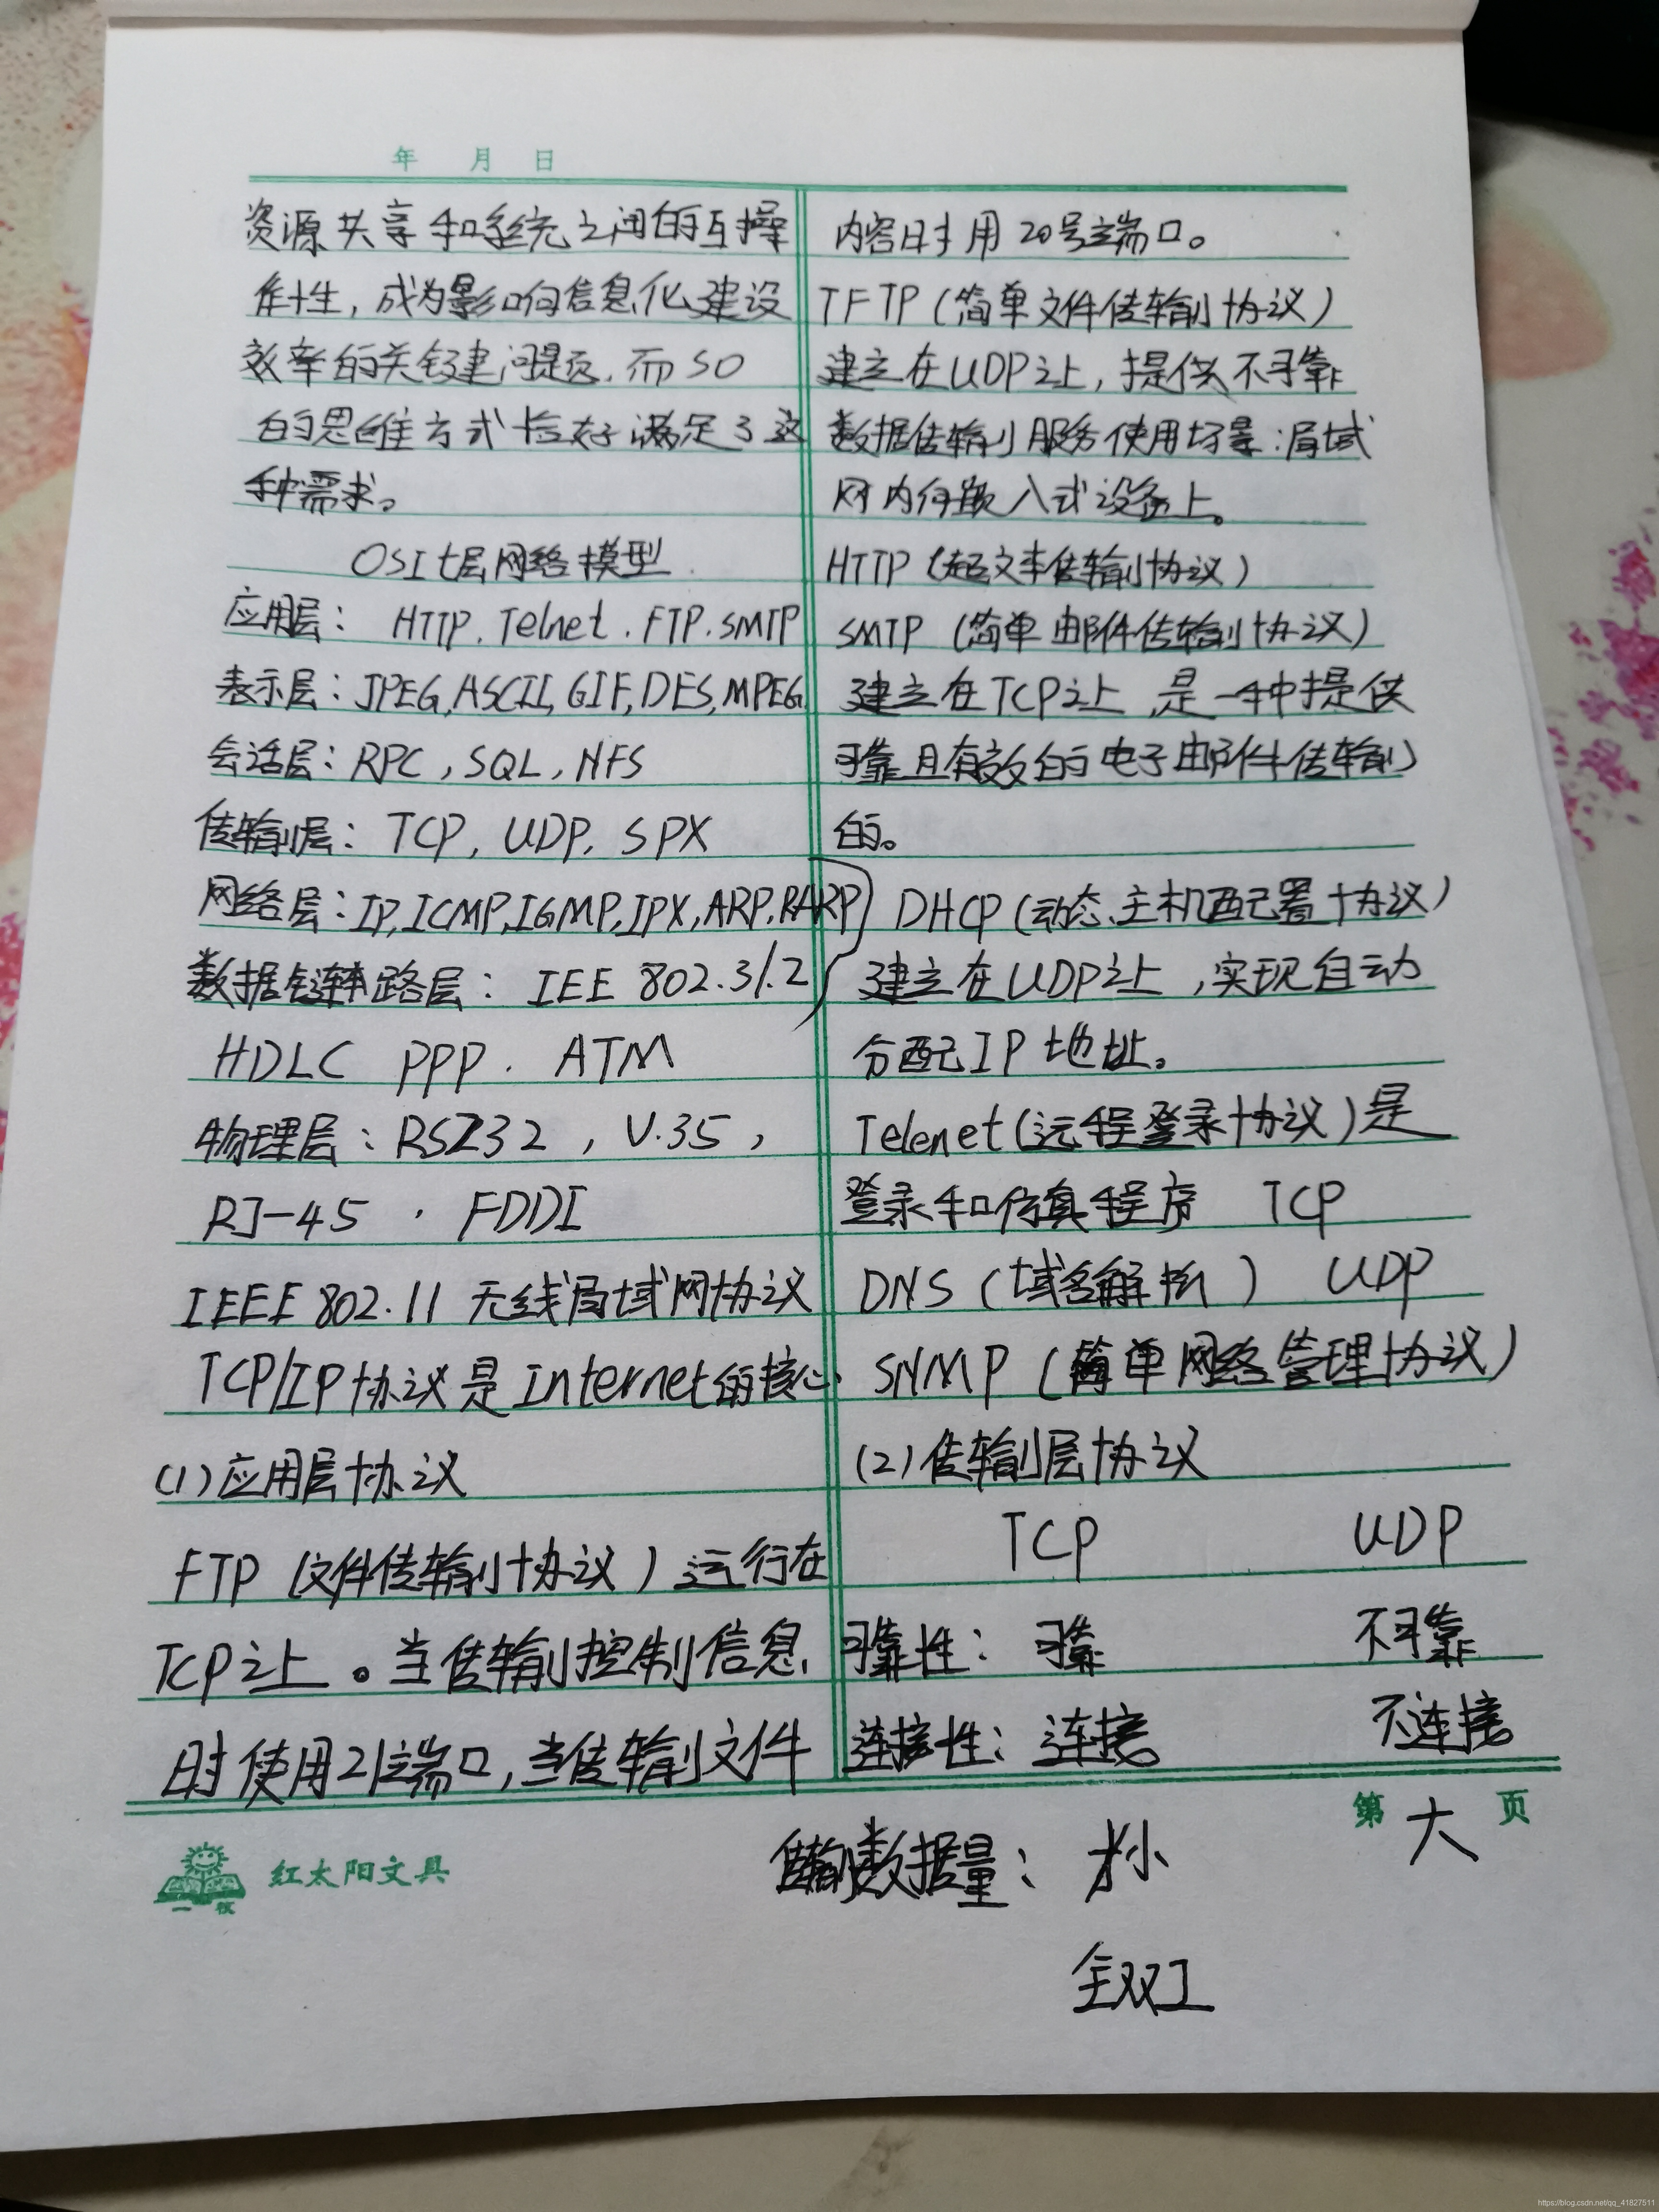 年 月 日
资源共享和系统之间的互操
作性，成为影响信息化建设
效率的关键建问题，而SO
的思维方式恰好满足了这
种需求。
OSI七层网络模型
应用层：HTTP.Telnet.FTP.SMTP
表示层：JPEG,ASCII,GIF,DES,MPEG
会话层：RPC，SQL，NFS
传输层：TCP，UDP，SPX
网络层：IP,ICMP,IGMP,IPX,ARP,RARP
数据链路层：IEE 802.3/.2
HDLC PPP. ATM
物理层：RS232，V.35，
RJ-45．FDDI
IEEE 802.11 无线局域网协议
TCP/IP协议是Internet的核心
(1)应用层协议
FTP（文件传输协议）运行在
TCP之上。当传输控制信息
时使用21端口，当传输文件
内容时用20号端口。
TFTP（简单文件传输协议）
建立在UDP之上，提供不可靠
数据传输服务使用场景：局域
网内何嵌入式设备上。
HTTP（超文本传输协议）
SMTP（简单邮件传输协议）
建立在TCP之上，是一种提供
可靠且有效的电子邮件传输
的。
DHCP（动态主机配置协议）
建立在UDP之上，实现自动
分配IP地址。
Telenet(远程登录协议)是
登录和仿真程序 TCP
DNS（域名解析） UDP
SNMP（简单网络管理协议）
(2)传输层协议
TCP UDP
可靠性：可靠 不可靠
连接性：连接 不连接
第 页
传输数据量： 小 大
全双工
红太阳文具
https://blog.csdn.net/qq_41827511